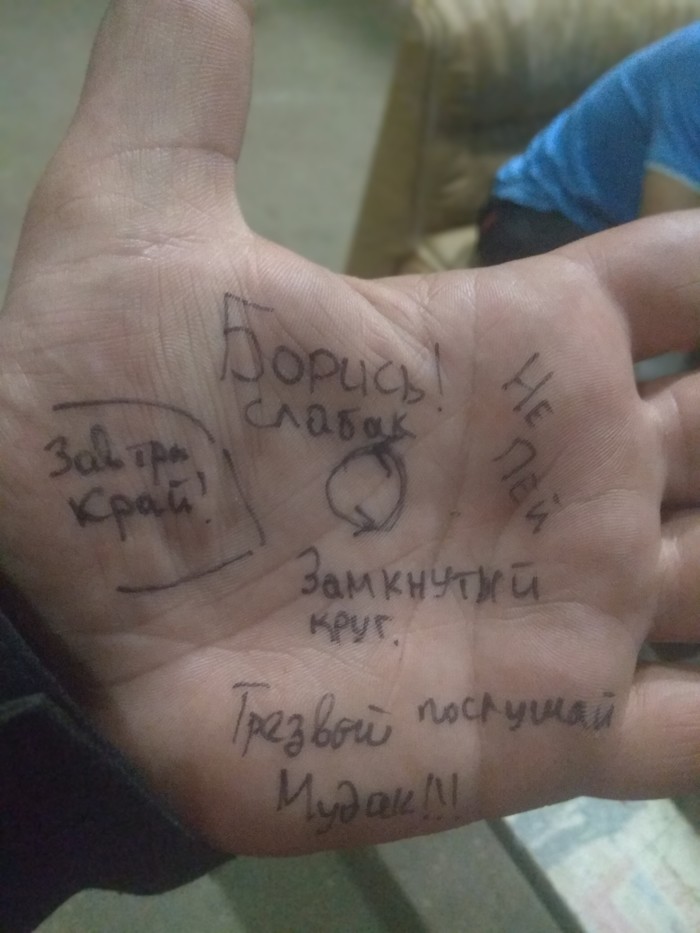 Борись!
слабак
Не
пей
Завтра
край!
Замкнутый
круг.
Трезвой послушай
Мудак!!!